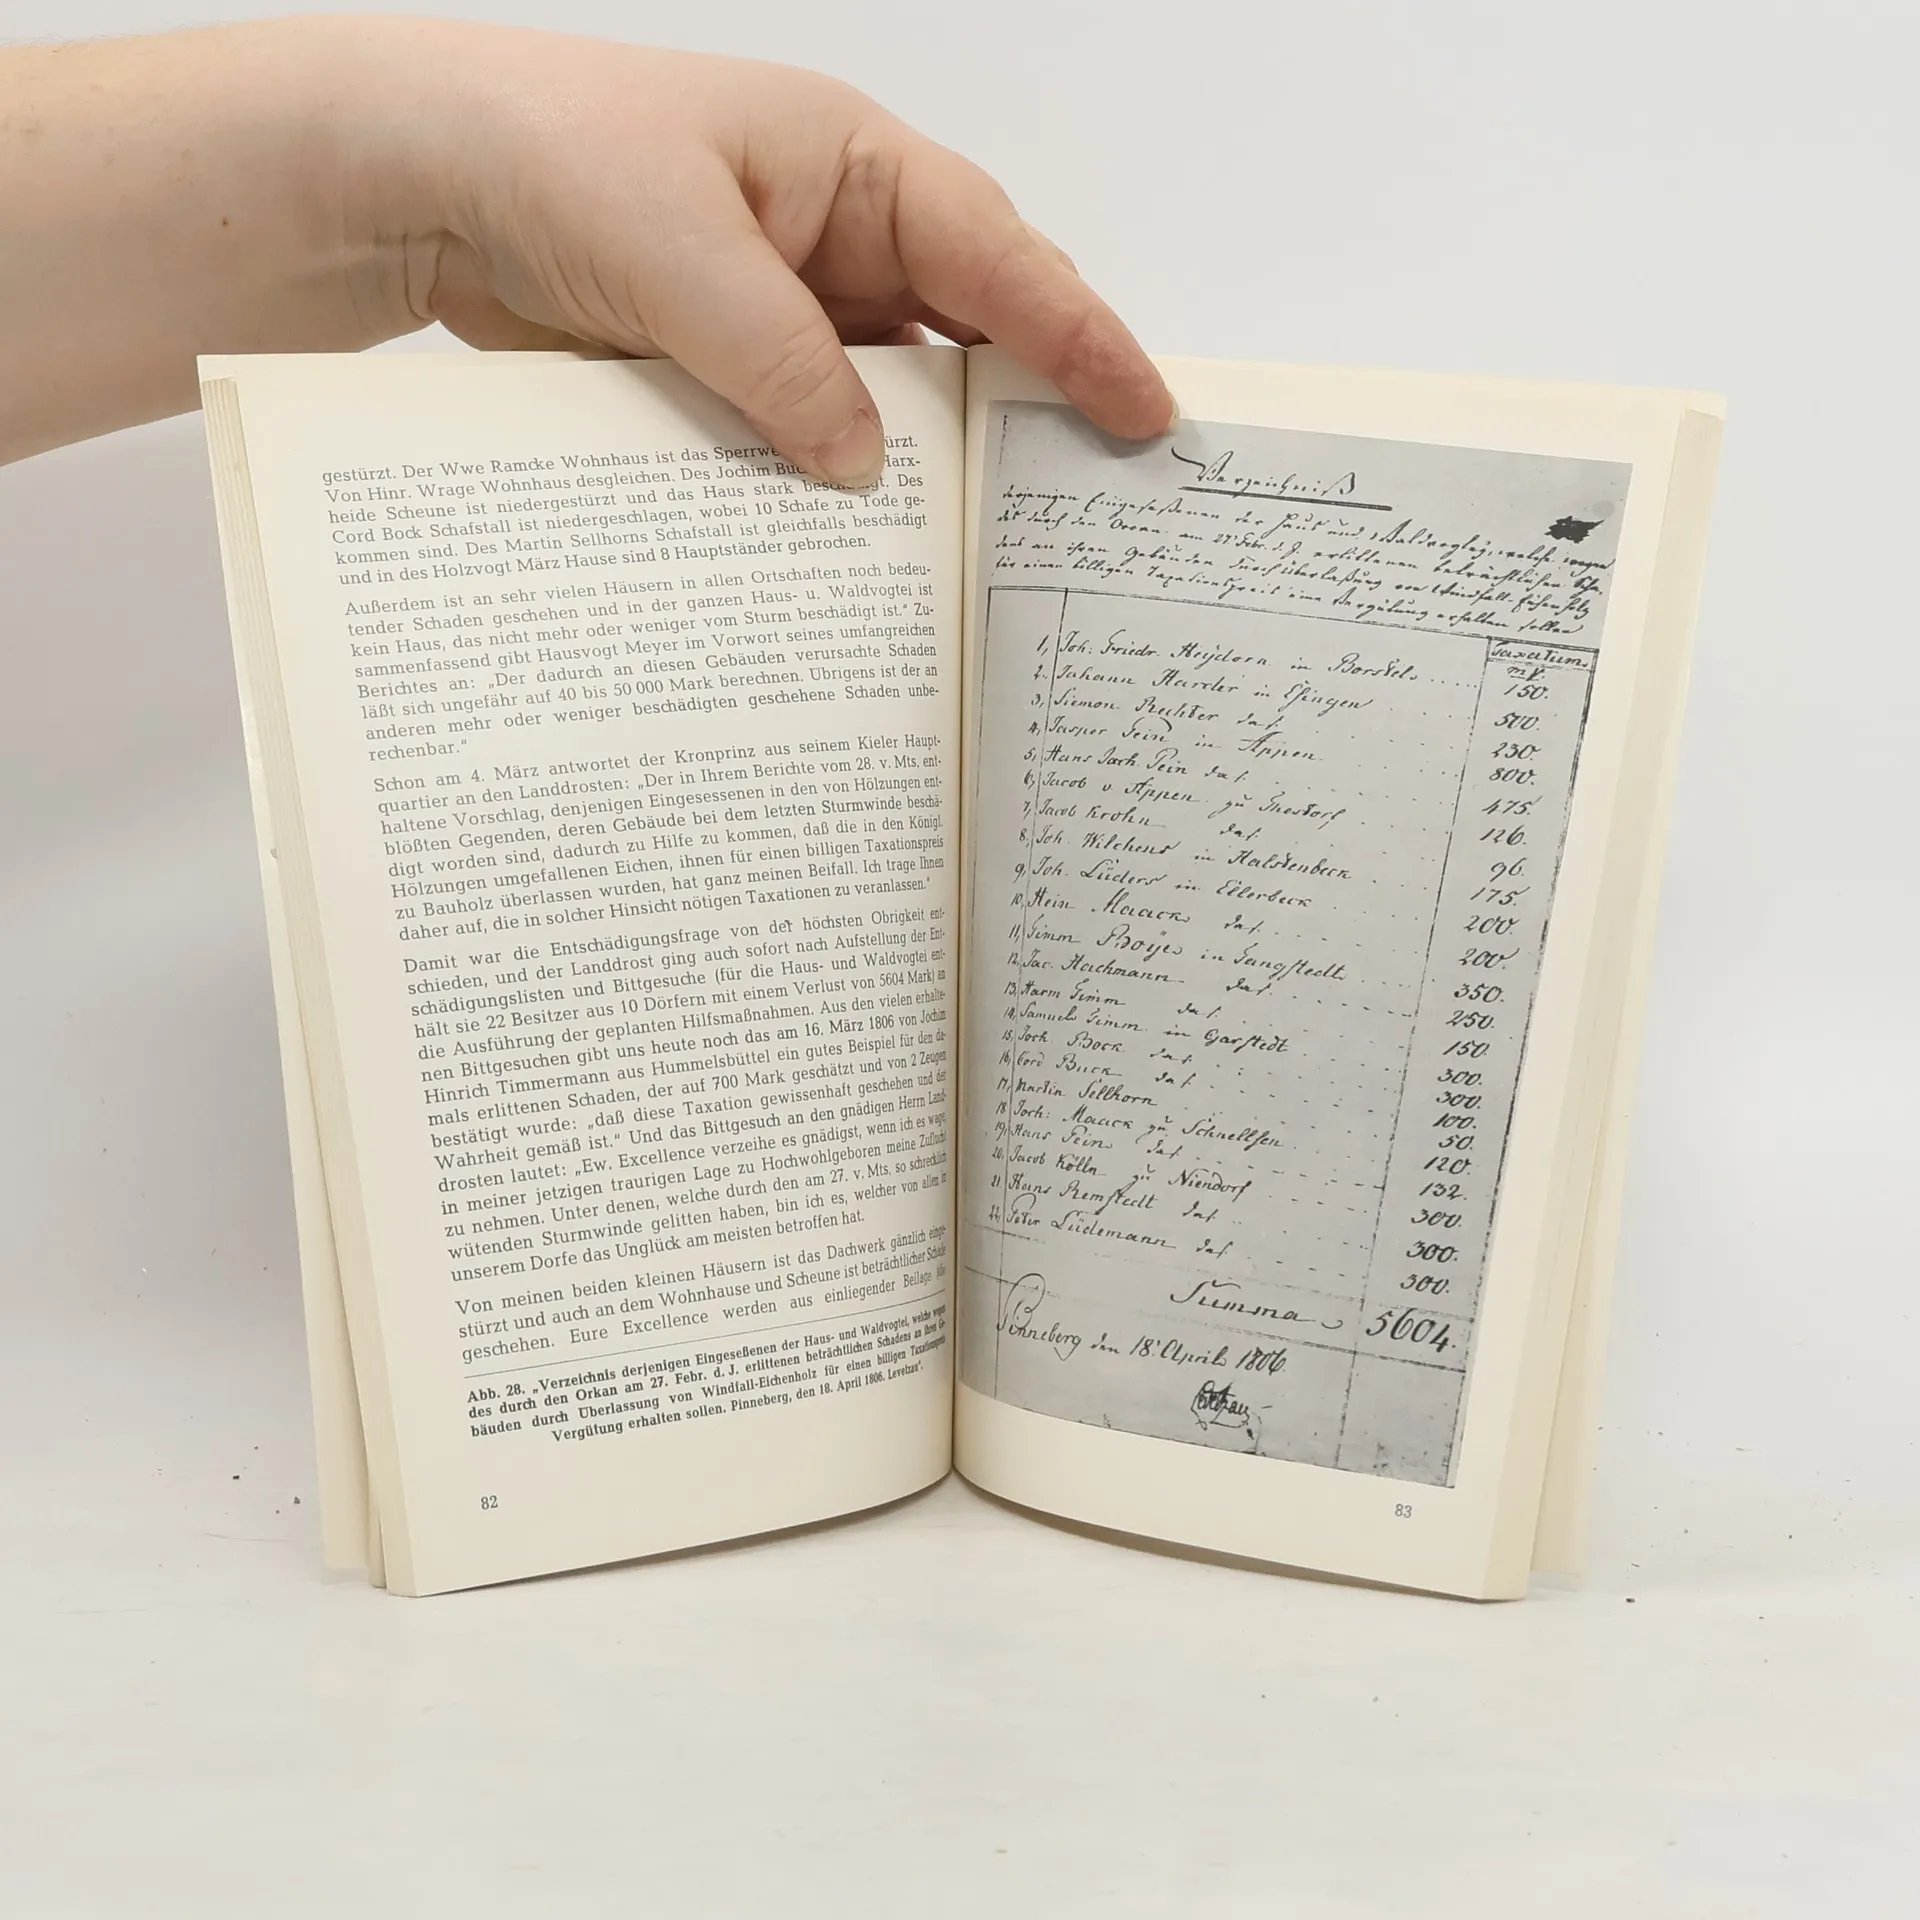 gestürzt. Der Wwe Ramcke Wohnhaus ist das Sperrwe ürzt.
Von Hinr. Wrage Wohnhaus desgleichen. Des Jochim Buc Harx-
heide Scheune ist niedergestürzt und das Haus stark beschädigt. Des
Cord Bock Schafstall ist niedergeschlagen, wobei 10 Schafe zu Tode ge-
kommen sind. Des Martin Sellhorns Schafstall ist gleichfalls beschädigt
und in des Holzvogt März Hause sind 8 Hauptständer gebrochen.
Außerdem ist an sehr vielen Häusern in allen Ortschaften noch bedeu-
tender Schaden geschehen und in der ganzen Haus- u. Waldvogtei ist
kein Haus, das nicht mehr oder weniger vom Sturm beschädigt ist.“ Zu-
sammenfassend gibt Hausvogt Meyer im Vorwort seines umfangreichen
Berichtes an: „Der dadurch an diesen Gebäuden verursachte Schaden
läßt sich ungefähr auf 40 bis 50 000 Mark berechnen. Übrigens ist der an
anderen mehr oder weniger beschädigten geschehene Schaden unbe-
rechenbar.“
Schon am 4. März antwortet der Kronprinz aus seinem Kieler Haupt-
quartier an den Landdrosten: „Der in Ihrem Berichte vom 28. v. Mts. ent-
haltene Vorschlag, denjenigen Eingesessenen in den von Hölzungen ent-
blößten Gegenden, deren Gebäude bei dem letzten Sturmwinde beschä-
digt worden sind, dadurch zu Hilfe zu kommen, daß die in den Königl.
Hölzungen umgefallenen Eichen, ihnen für einen billigen Taxationspreis
zu Bauholz überlassen wurden, hat ganz meinen Beifall. Ich trage Ihnen
daher auf, die in solcher Hinsicht nötigen Taxationen zu veranlassen.“
Damit war die Entschädigungsfrage von der höchsten Obrigkeit ent-
schieden, und der Landdrost ging auch sofort nach Aufstellung der Ent-
schädigungslisten und Bittgesuche (für die Haus- und Waldvogtei ent-
hält sie 22 Besitzer aus 10 Dörfern mit einem Verlust von 5604 Mark) an
die Ausführung der geplanten Hilfsmaßnahmen. Aus den vielen erhalte-
nen Bittgesuchen gibt uns heute noch das am 16. März 1806 von Jochim
Hinrich Timmermann aus Hummelsbüttel ein gutes Beispiel für den da-
mals erlittenen Schaden, der auf 700 Mark geschätzt und von 2 Zeugen
bestätigt wurde: „daß diese Taxation gewissenhaft geschehen und der
Wahrheit gemäß ist.“ Und das Bittgesuch an den gnädigen Herrn Land-
drosten lautet: „Ew. Excellence verzeihe es gnädigst, wenn ich es wage,
in meiner jetzigen traurigen Lage zu Hochwohlgeboren meine Zuflucht
zu nehmen. Unter denen, welche durch den am 27. v. Mts. so schrecklich
wütenden Sturmwinde gelitten haben, bin ich es, welcher von allen in
unserem Dorfe das Unglück am meisten betroffen hat.
Von meinen beiden kleinen Häusern ist das Dachwerk gänzlich einge-
stürzt und auch an dem Wohnhause und Scheune ist beträchtlicher Schade
geschehen. Eure Excellence werden aus einliegender Beilage
Abb. 28. „Verzeichnis derjenigen Eingeseßenen der Haus- und Waldvogtei, welche wegen
des durch den Orkan am 27. Febr. d. J. erlittenen beträchtlichen Schadens an ihren Ge-
bäuden durch Überlassung von Windfall-Eichenholz für einen billigen Taxationspreis
Vergütung erhalten sollen. Pinneberg, den 18. April 1806. Levetzau“.
82
Verzeichniß
derjenigen Eingeseßenen der Haus und Waldvogtey, welche wegen
des durch den Orcan am 27. Febr. d. J. erlittenen beträchtlichen Scha-
dens an ihren Gebäuden durch Überlaßung von Windfall-Eichenholz
für einen billigen Taxationspreis eine Vergütung erhalten sollen
Taxatum
mk
1, Joh: Friedr. Heydorn in Borstel 150.
2. Johann Harder in Eßingen 500.
3, Siemon Richter das. 230.
4, Jasper Pein in Appen 800.
5, Hans Joch. Pein das. 475.
6, Jacob v. Appen zu Thestorf 126.
7, Jacob Krohn das. 96.
8, Joh. Wilchens in Halstenbeck 175.
9, Joh. Lüders in Ellerbeck 200.
10, Hein Maack das. 200.
11, Timm Böye in Langstedt 350.
12, Jac. Hachmann das. 250.
13, Harm Timm das. 150.
14, Samuel Timm in Garstedt 300.
15, Joch. Bock das. 300.
16, Cord Buck das. 100.
17, Martin Sellhorn 50.
18, Joch: Maack zu Schnellsen 120.
19, Hans Pein das. 132.
20, Jacob Kölln zu Niendorf 300.
21, Hans Remstedt das. 300.
22, Peter Lüdemann das. 300.
Summa 5604.
Pinneberg den 18. April 1806.
Levetzau
83